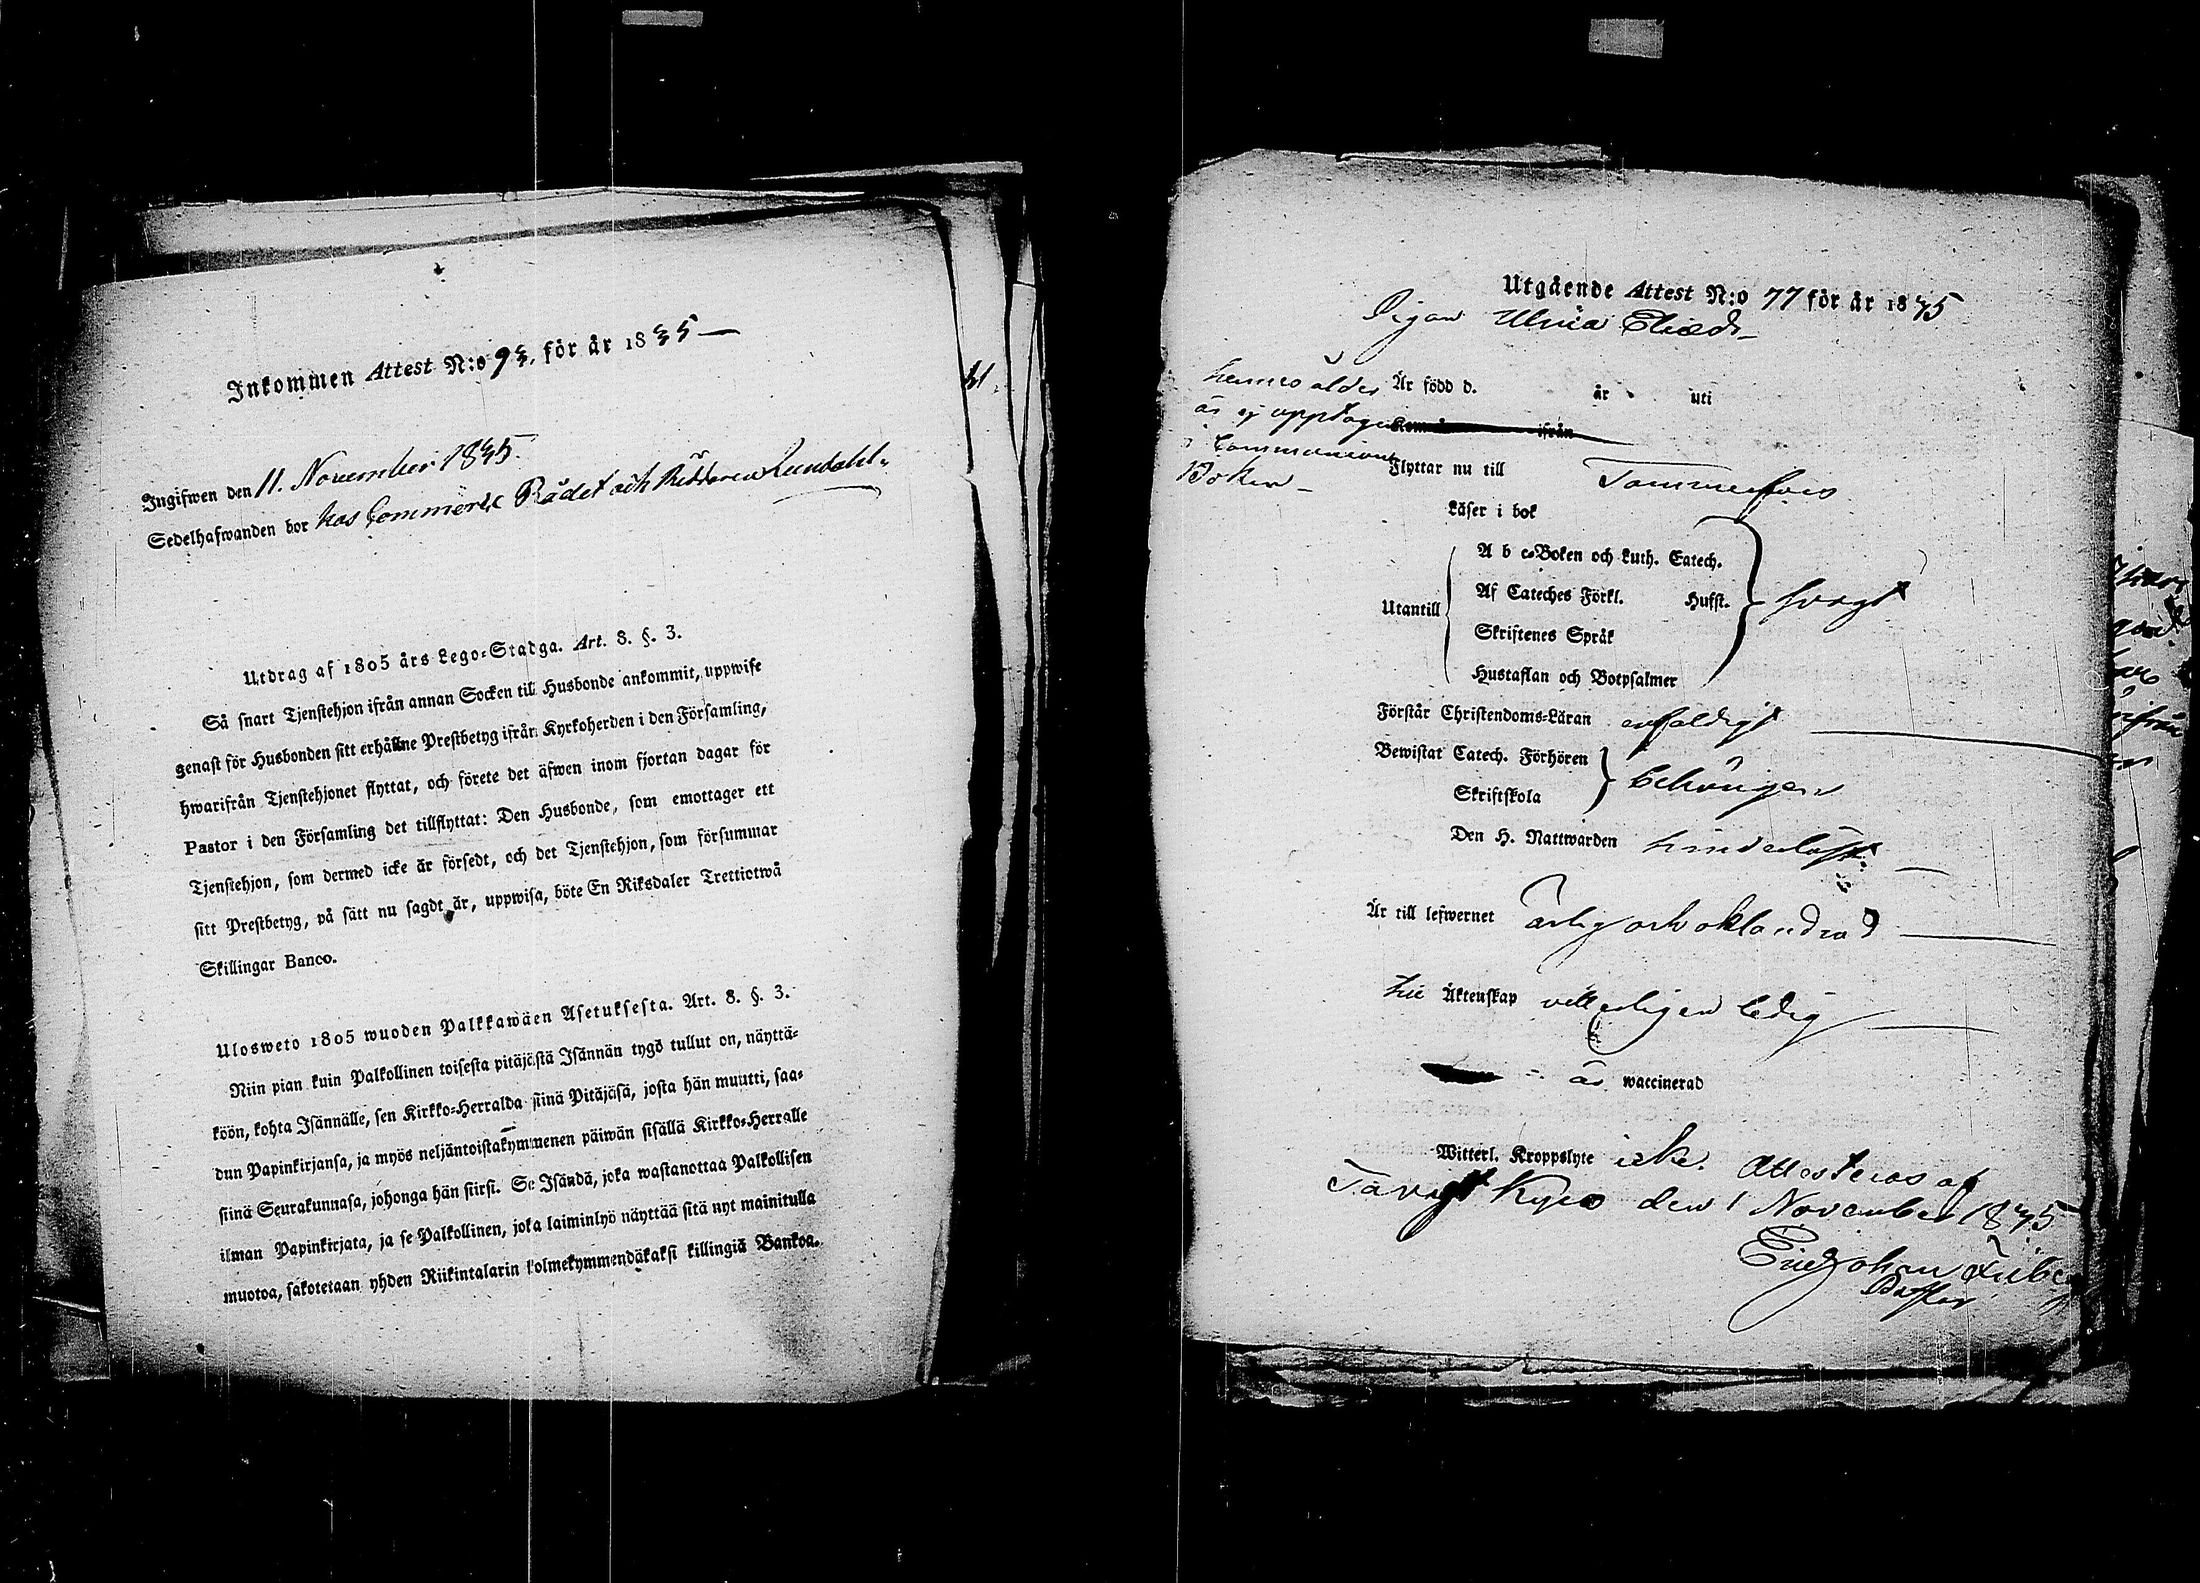 Inkommen Attest N:o 93. för år 1835
Ingifwen den 11. November 1835.
Sedelhafwanden bor hos Commerce Rådet och Riddaren Lundahl.
Utdrag af 1805 års Lego-Stadga. Art. 8. §. 3.
Så snart Tjenstehjon ifrån annan Socken till Husbonde ankommit, uppwise
genast för Husbonden sitt erhållne Prestbetyg ifrån Kyrkoherden i den Församling,
hwarifrån Tjenstehjonet flyttat, och förete det äfwen inom fjortan dagar för
Pastor i den Församling det tillflyttat: Den Husbonde, som emottager ett
Tjenstehjon, som dermed icke är försedt, och det Tjenstehjon, som försummar
sitt Prestbetyg, på sätt nu sagdt är, uppwisa, böte En Riksdaler Trettiotwå
Skillingar Banco.
Ulosweto 1805 wuoden Palkkawäen Asetuksesta. Art. 8. §. 3.
Niin pian kuin Palkollinen toisesta pitäjästä Isännän tygö tullut on, näyttä-
köön, kohta Isännälle, sen Kirkko-Herralda siinä Pitäjäsä, josta hän muutti, saa-
dun Papinkirjansa, ja myös neljäntoistakymmenen päiwän sisällä Kirkko-Herralle
siinä Seurakunnasa, johonga hän siirsi. Se Isändä, joka wastanottaa Palkollisen
ilman Papinkirjata, ja se Palkollinen, joka laiminlyö näyttää sitä nyt mainitulla
muotoa, sakotetaan yhden Riikintalarin kolmekymmendäkaksi killingiä Bankoa.
Utgående Attest N:o 77 för år 1835
Pigan Ulrica
hennes ålder Är född d. år uti
är ej upptagen ifrån
i Communion
Boken
Flyttar nu till Tammerfors
Läser i bok
A b c-Boken och Luth. Catech.
Af Cateches Förkl. Husst.
Utantill
svagt
Skriftenes Språk
Hustaflan och Botpsalmer
Förstår Christendoms-Läran enfaldigt
Bewistat Catech. Förhören
behörigen
Skriftskola
Den H. Nattwarden hinderlöst
Är till lefwernet ärlig och oklandrad
till Äktenskap vetterligen ledig
är waccinerad
Witterl. Kroppslyte icke. Attesteras af
Tavast Kyro den 1 November 1835
Eric Johan
Pastor